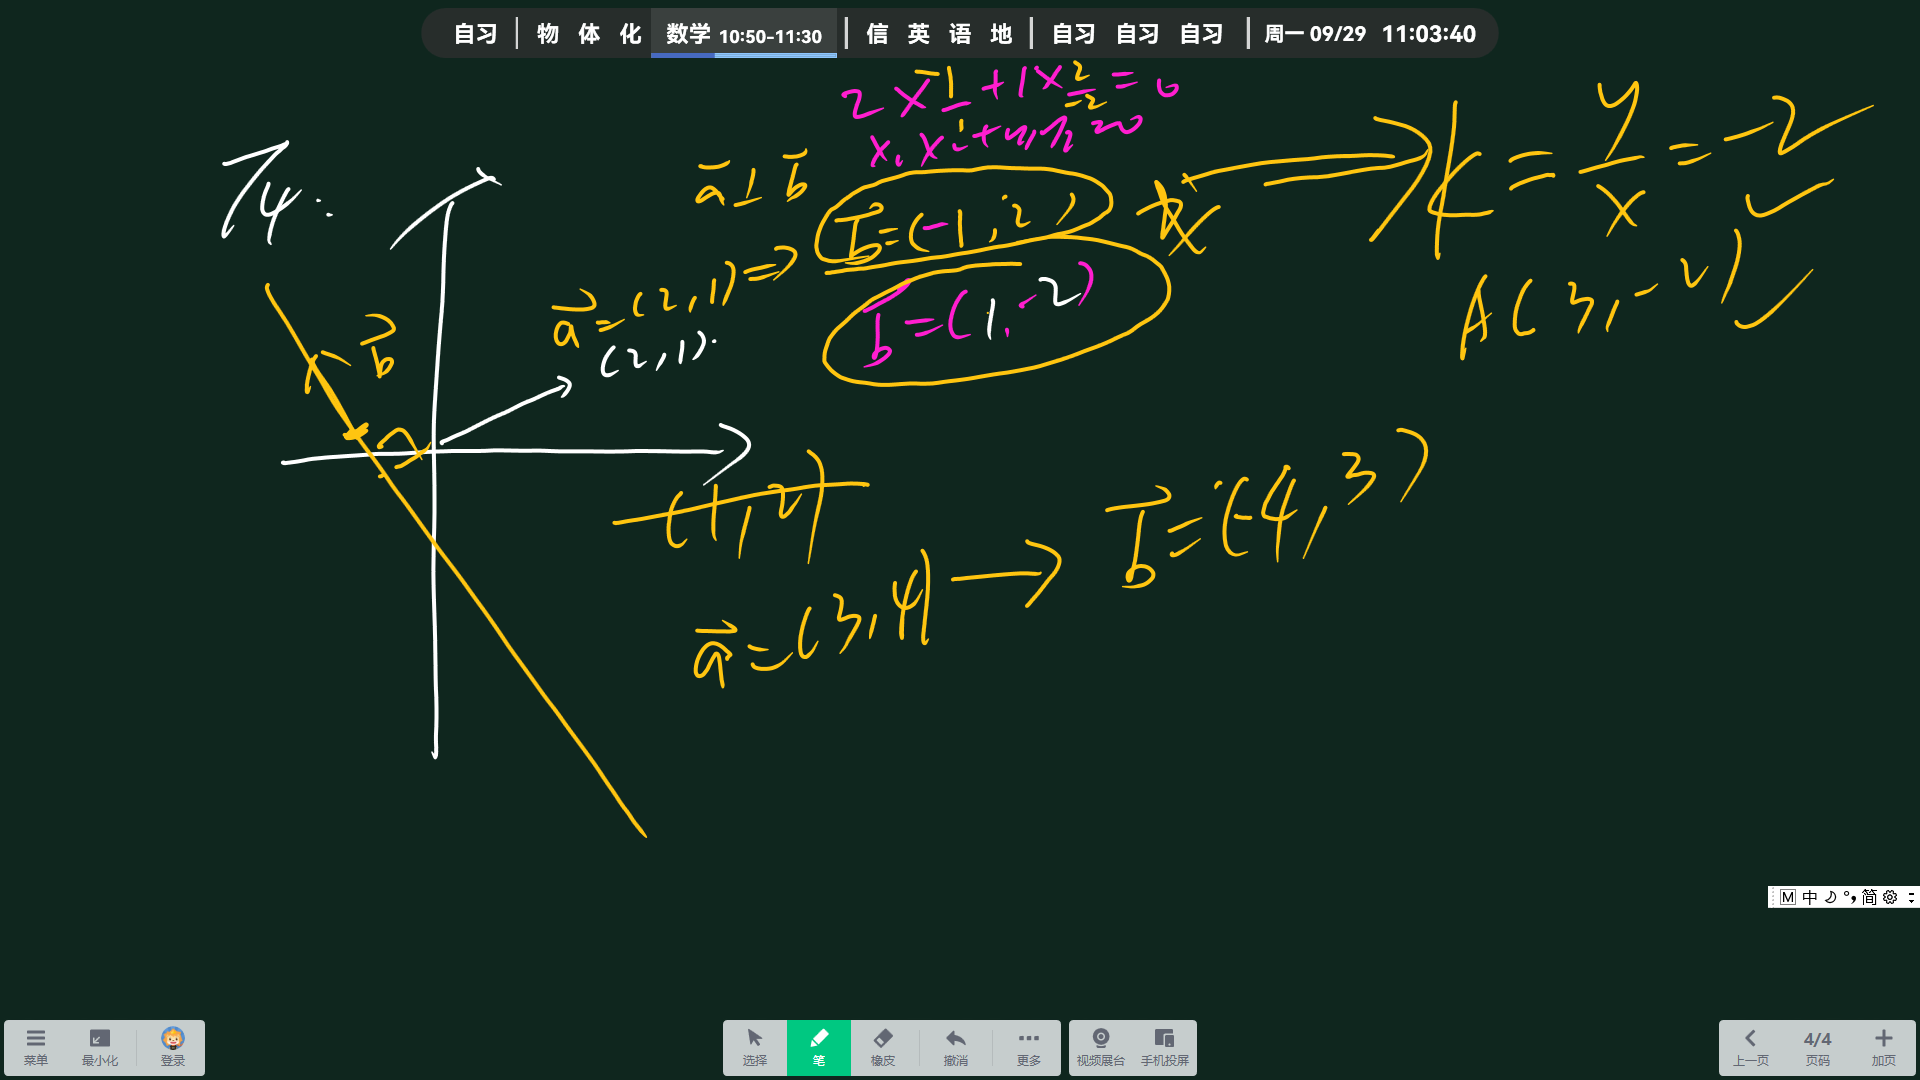 自习 | 物 体 化 数学 10:50-11:30 | 信 英 语 地 | 自习 自习 自习 | 周一 09/29 11:03:40
2×-1+1×2=0
-2
x₁x₂+y₁y₂=0
74.
a⊥b
b=(-1,2)
k=y/x=-2
a=(2,1)⇒
b=(1,-2)
A(3,-2)
(2,1).
b
(1,2)
b=(-4,3)
a=(3,4)
M 中 简
菜单 最小化 登录
选择 笔 橡皮 撤消 更多
视频展台 手机投屏
上一页 4/4 页码 加页